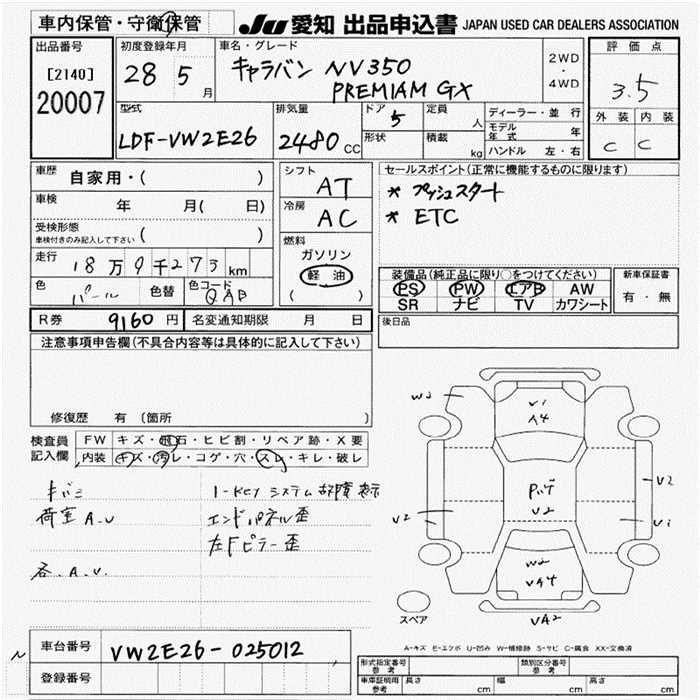 車内保管・守衛保管
JU 愛知 出品申込書 JAPAN USED CAR DEALERS ASSOCIATION
出品番号
[2140]
20007
初度登録年月
28 5 月
車名・グレード
キャラバン NV350
PREMIAM GX
2WD
・
4WD
評価点
3.5
外装 内装
C C
型式
LDF-VW2E26
排気量
2480 CC
ドア 5
形状
定員 人
積載 kg
ディーラー・並行
モデル年式 年
ハンドル 左・右
車歴 自家用・( )
車検 年 月( 日)
受検形態
車検付きのみ記入して下さい ( )
走行 18万9千273 km
色 パール 色替
色コード QAB
シフト AT
冷房 AC
燃料
ガソリン
軽油
( )
セールスポイント(正常に機能するものに限ります)
* プッシュスタート
* ETC
装備品(純正品に限り○をつけてください)
PS PW エアB AW
SR ナビ TV カワシート
新車保証書
有・無
R券 9160 円
名変通知期限 月 日
後日品
注意事項申告欄(不具合内容等は具体的に記入して下さい)
修復歴 有 (箇所 )
検査員記入欄
FW キズ・飛石・ヒビ割・リペア跡・X要
内装 キズ・汚レ・コゲ・穴・スレ・キレ・破レ
キバミ
荷室 A.U
各.A.U.
I-Key システム故障表示
エンドパネル歪
左Fピラー歪
W3
U1
A4
U2
U2
U1
U2
W2
UA4
UA2
スペア
A-キズ E-エクボ U-凹み W-補修跡 S-サビ C-腐食 XX-交換済
車台番号 VW2E26-025012
登録番号
形式指定番号 参考
類別区分番号 参考
車庫証明用 参考
長さ cm 幅 cm 高さ cm